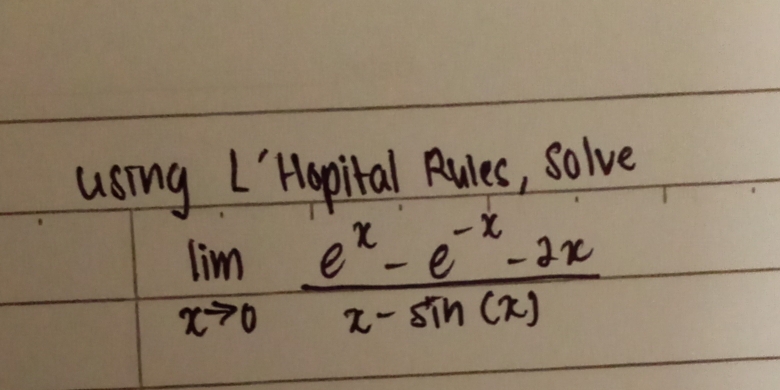 using L'Hopital Rules, solve
lim x→0 (e^x - e^-x - 2x) / (x - sin (x))